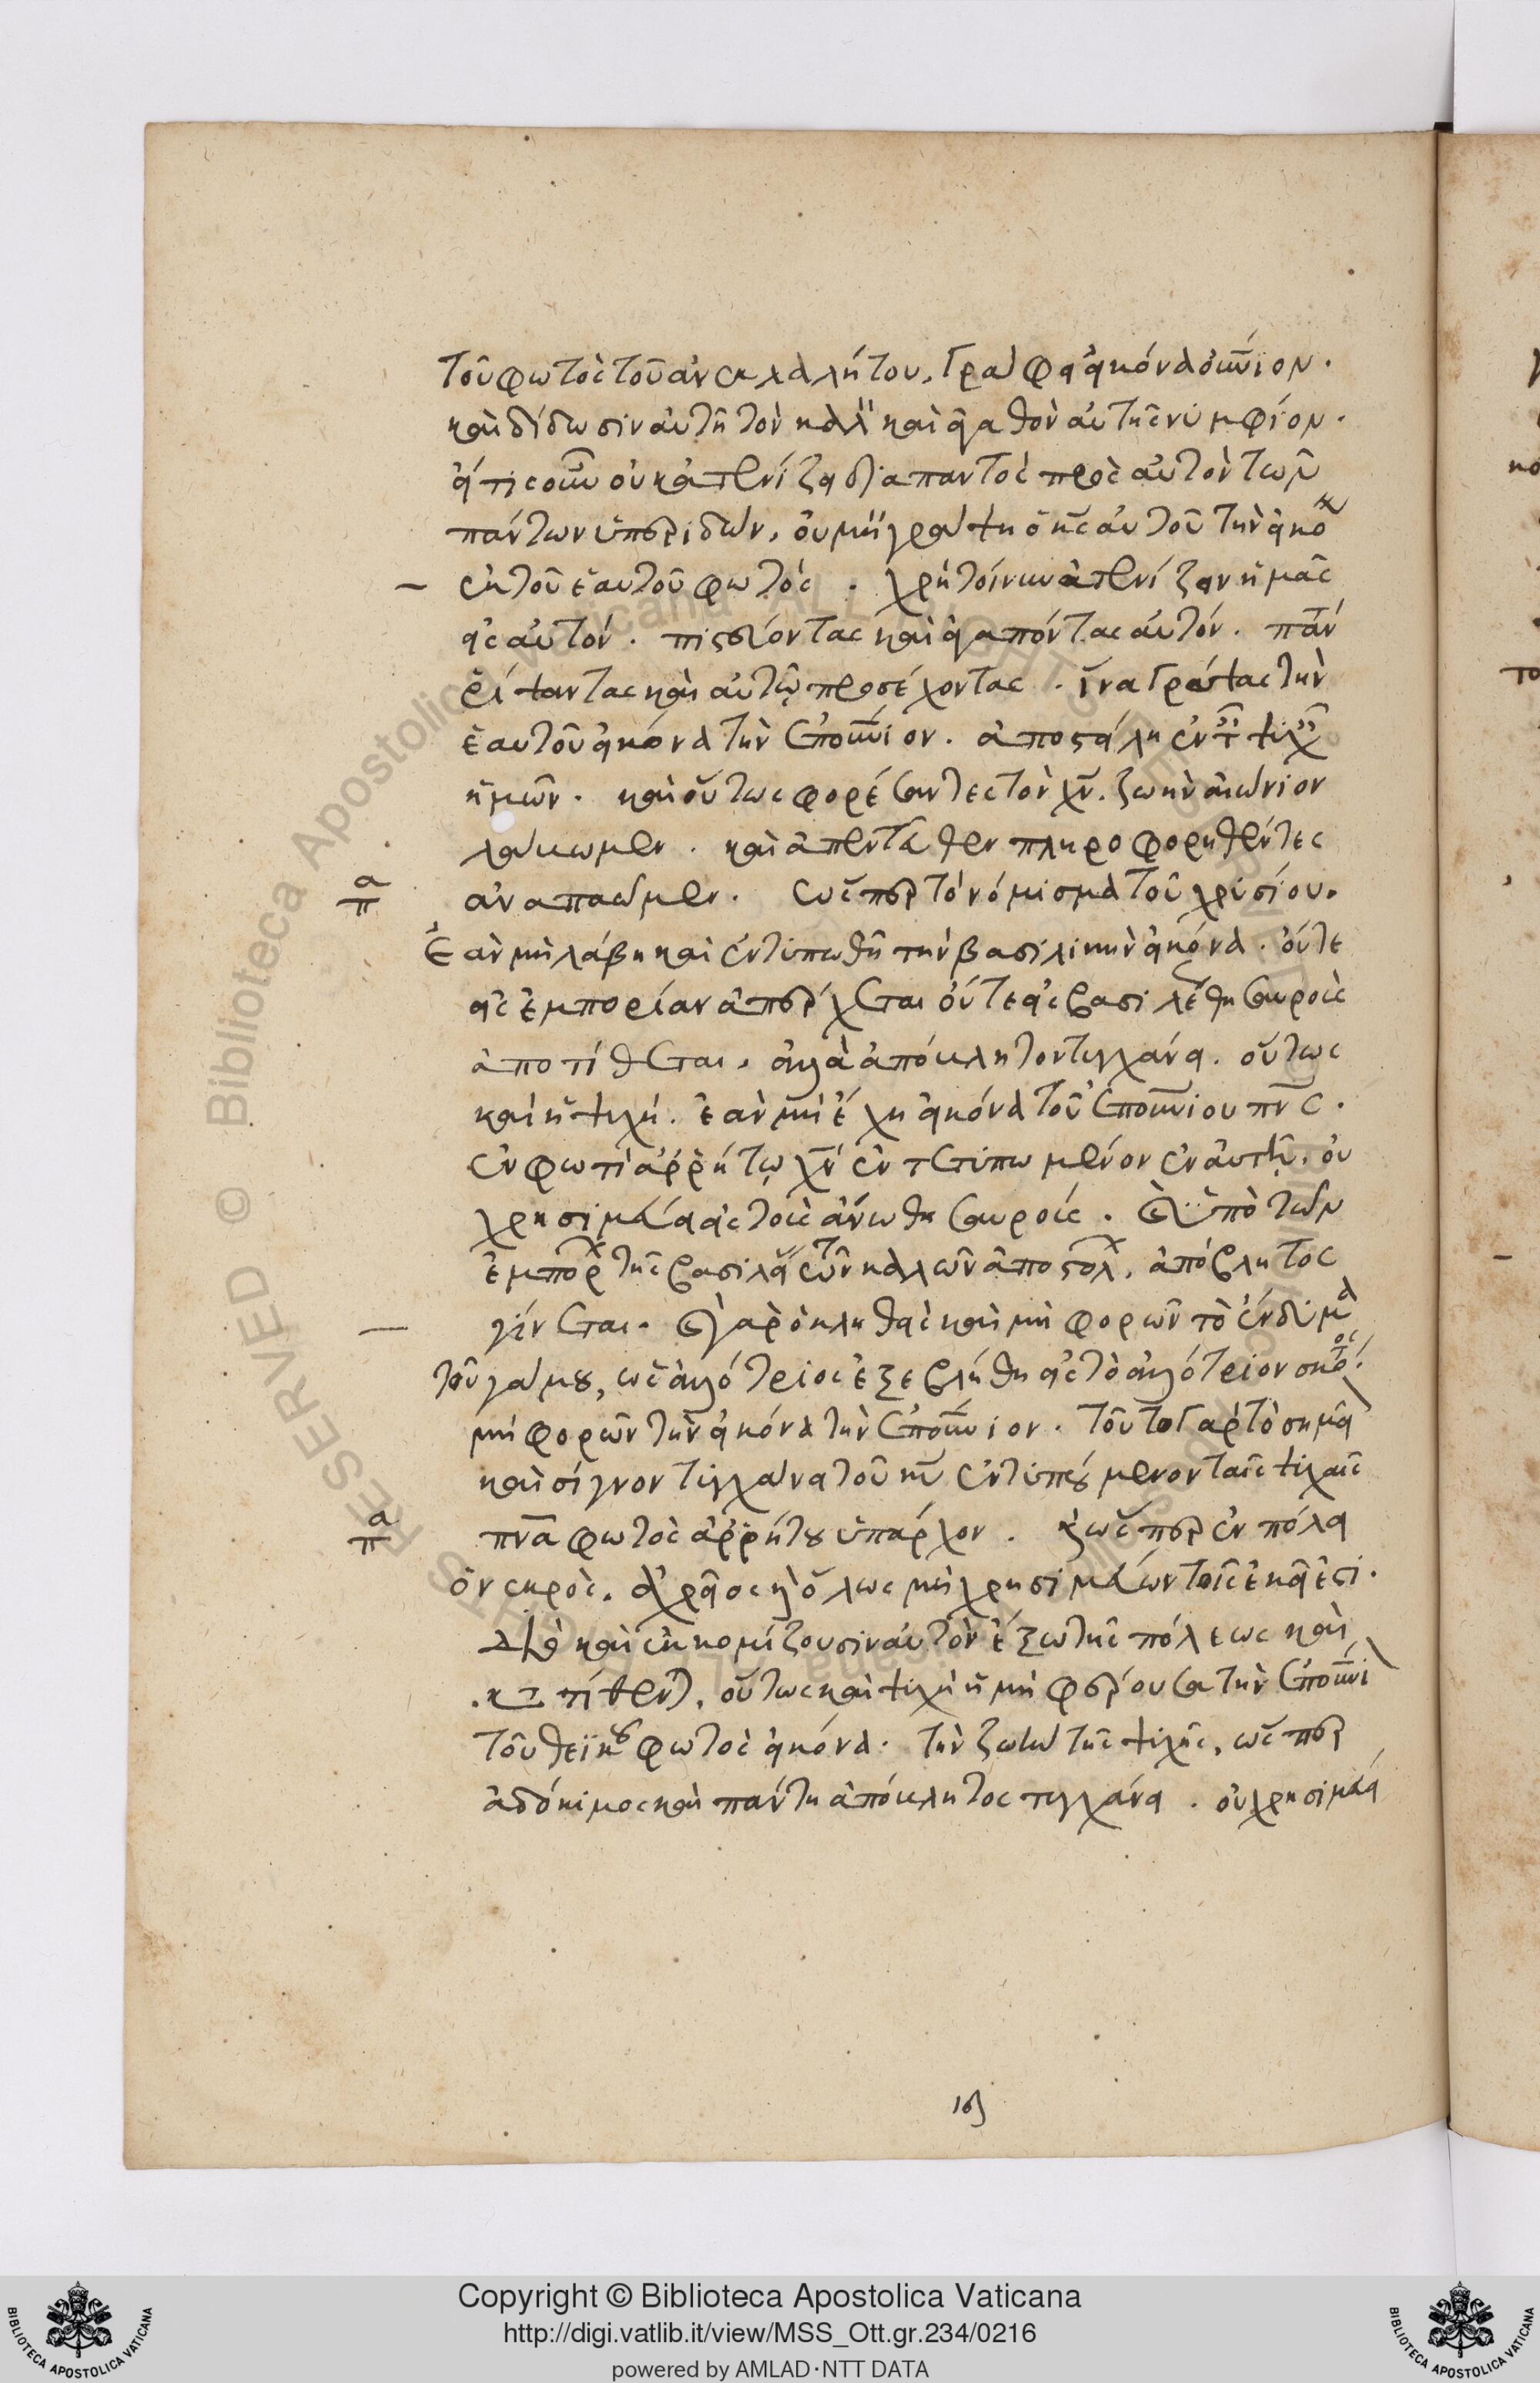 τοῦ φωτὸς τοῦ ἀνεκλαλήτου, γράφει εἰκόνα οὐράνιον.
καὶ δίδωσιν αὐτῆ τὸν καλὸν καὶ ἀγαθὸν αὐτῆς νυμφίον.
εἴ τις οὖν οὐκ ἀτενίζει διαπαντὸς πρὸς αὐτὸν τῶν
πάντων ὑπεριδών, οὐ μὴ γράψη ὁ κς αὐτοῦ τὴν εἰκόνα
ἐκ τοῦ ἑαυτοῦ φωτός. χρὴ τοίνυν ἀτενίζειν ἡμᾶς
εἰς αὐτόν. πιστεύοντας καὶ ἀγαπόντας αὐτόν. πάν
ῥίψαντας καὶ αὐτῷ προσέχοντας. ἵνα γράψας τὴν
ἑαυτοῦ εἰκόνα τὴν ἐπουνιον. ἀποστείλη ἐν τ ψυχ
ἡμῶν. καὶ οὕτως φορέσαντες τὸν χν. ζωὴν αἰώνιον
λάβωμεν. καὶ ἀπεντεῦθεν πληροφορηθέντες
ἀναπαῶμεν. ὥσπερ τὸ νόμισμα τοῦ χρυσίου.
α
π
Ἐὰν μὴ λάβη καὶ ἐντυπωθῆ τὴν βασιλικὴν εἰκόνα. οὔτε
εἰς ἐμπορίαν ἀπέρχεται οὔτε εἰς βασιλέως θησαυροὺς
ἀποτίθεται. ἀλλὰ ἀπόκλητον τυγχάνει. οὕτως
καὶ ἡ ψυχή. ἐὰν μὴ ἔχη εἰκόνα τοῦ ἐπουνίου πνς.
ἐν φωτὶ ἀρρήτῳ χν ἐντετυπωμένον ἐν αὐτῆ, οὐ
χρησιμεύει εἰς τοὺς ἄνω θησαυρούς. ὑπὸ τῶν
ἐμπορ τῆς βασιλεί τῶν καλῶν ἀποστολ, ἀπόβλητος
γίνεται. γὰρ ὁ κληθεὶς καὶ μὴ φορῶν τὸ ἔνδυμα
τοῦ γάμου, ὡς ἀλλότριος ἐξεβλήθη εἰς τὸ ἀλλότριον σκότος.
μὴ φορῶν τὴν εἰκόνα τὴν ἐπουνιον. τοῦτο γὰρ τὸ σημεῖ
καὶ σίγνον τυγχάνει τοῦ κυ ἐντυπούμενον ταῖς ψυχαῖς
πνα φωτὸς ἀρρήτου ὑπάρχον. ὥσπερ ἐν πόλει
α
π
ὁ νεκρὸς. ἀχρεῖος ὅλως μὴ χρησιμεύων τοῖς ἐκεῖ ἐστί.
διὸ καὶ ἐκκομίζουσιν αὐτὸν ἔξω τῆς πόλεως καὶ
κατατίθεντ, οὕτως καὶ ψυχὴ ἡ μὴ φέρουσα τὴν ἐπουνι
τοῦ θεϊκοῦ φωτὸς εἰκόνα. τὴν ζωὴν τῆς ψυχῆς, ὥσπερ
ἀδόκιμος καὶ πάντη ἀπόκλητος τυγχάνει. οὐ χρησιμεύει
Copyright © Biblioteca Apostolica Vaticana
http://digi.vatlib.it/view/MSS_Ott.gr.234/0216
powered by AMLAD·NTT DATA
BIBLIOTECA APOSTOLICA VATICANA
BIBLIOTECA APOSTOLICA VATICANA